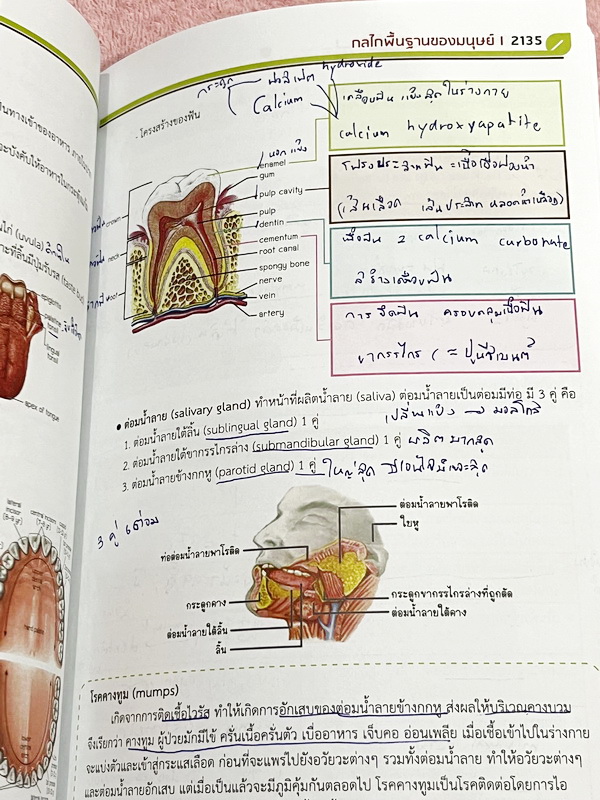 กลไกพื้นฐานของมนุษย์ I 2135
hydroxide
Calcium
เคลือบฟัน แข็งสุดในร่างกาย
calcium hydroxyapatite
โครงสร้างของฟัน
enamel
gum
pulp cavity
pulp
dentin
cementum
root canal
spongy bone
nerve
vein
artery
crown
neck
root
(เส้นเลือด เส้นประสาท หลอดน้ำเหลือง)
เนื้อฟัน 2 calcium carbonate
สร้างเคลือบฟัน
การยึดฟัน ครอบคลุมเนื้อฟัน
ขากรรไกร
● ต่อมน้ำลาย (salivary gland) ทำหน้าที่ผลิตน้ำลาย (saliva) ต่อมน้ำลายเป็นต่อมมีท่อ มี 3 คู่ คือ
1. ต่อมน้ำลายใต้ลิ้น (sublingual gland) 1 คู่
เปลี่ยนแป้ง → มอลโทส
2. ต่อมน้ำลายใต้ขากรรไกรล่าง (submandibular gland) 1 คู่ ผลิตมากสุด
3. ต่อมน้ำลายข้างกกหู (parotid gland) 1 คู่ ใหญ่สุด
3 คู่
ต่อมน้ำลายพาโรติด
ใบหู
ท่อต่อมน้ำลายพาโรติด
กระดูกคาง
กระดูกขากรรไกรล่างที่ถูกตัด
ต่อมน้ำลายใต้คาง
ต่อมน้ำลายใต้ลิ้น
ลิ้น
โรคคางทูม (mumps)
เกิดจากการติดเชื้อไวรัส ทำให้เกิดการอักเสบของต่อมน้ำลายข้างกกหู ส่งผลให้บริเวณคางบวม
จึงเรียกว่า คางทูม ผู้ป่วยมักมีไข้ ครั่นเนื้อครั่นตัว เบื่ออาหาร เจ็บคอ อ่อนเพลีย เมื่อเชื้อเข้าไปในร่างกาย
จะแบ่งตัวและเข้าสู่กระแสเลือด ก่อนที่จะแพร่ไปยังอวัยวะต่างๆ รวมทั้งต่อมน้ำลาย ทำให้อวัยวะต่างๆ
และต่อมน้ำลายอักเสบ แต่เมื่อเป็นแล้วจะมีภูมิคุ้มกันตลอดไป โรคคางทูมเป็นโรคติดต่อโดยการไอ
(uvula)
epiglottis
lingual
tonsil
apex of tongue
hard palate